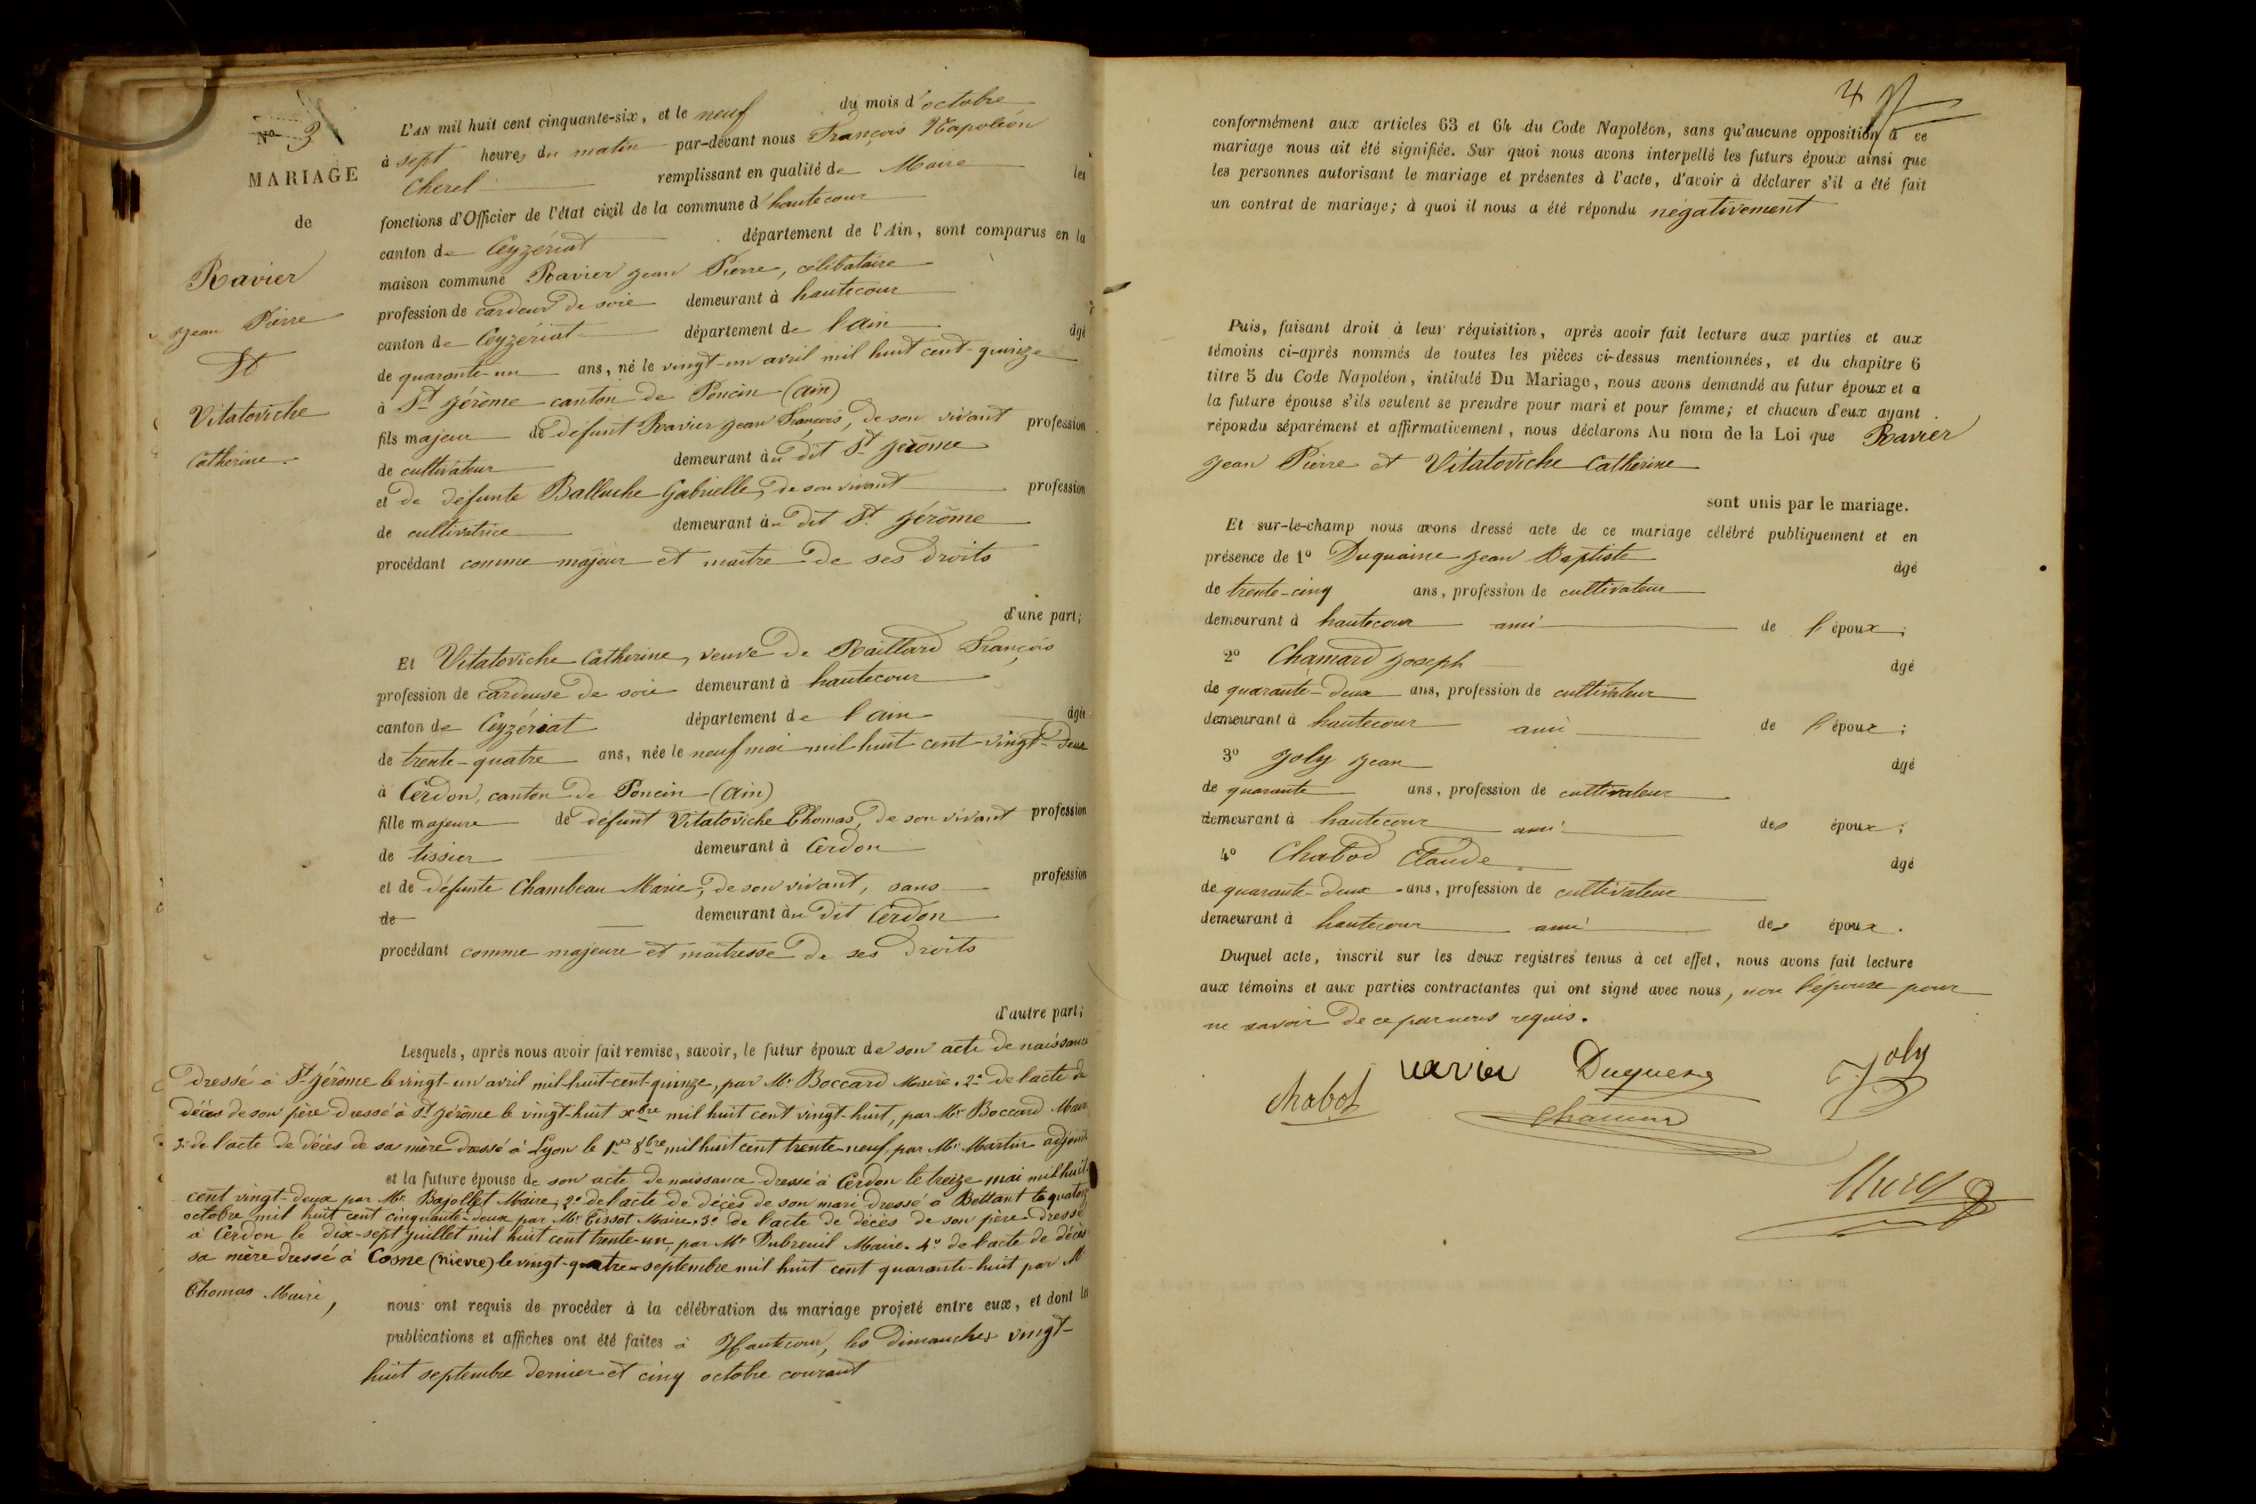 No 3
MARIAGE
de
Ravier
Jean Pierre
Et
Vitatoviche
Catherine
L'AN mil huit cent cinquante-six, et le neuf du mois d'octobre
à sept heures du matin par-devant nous François Napoléon
Cherel remplissant en qualité de Maire les
fonctions d'Officier de l'état civil de la commune d'hautecour
canton de Ceyzériat département de l'Ain, sont comparus en la
maison commune Ravier Jean Pierre, célibataire
profession de cardeur de soie demeurant à hautecour
canton de Ceyzériat département de l'ain âgé
de quarante-un ans, né le vingt-un avril mil huit cent-quinze
à St Jérôme canton de Poncin (ain)
fils majeur de défunt Ravier Jean François, de son vivant profession
de cultivateur demeurant àu dit St Jérôme
et de défunte Balluche Gabrielle, de son vivant profession
de cultivatrice demeurant àu dit St Jérôme
procédant comme majeur et maître de ses droits
d'une part;
Et Vitatoviche Catherine, veuve de Raillard François
profession de cardeuse de soie demeurant à hautecour
canton de Ceyzériat département de l'ain âgée
de trente-quatre ans, née le neuf mai mil huit cent vingt-deux
à Cerdon, canton de Poncin (ain)
fille majeure de défunt Vitatoviche Thomas, de son vivant profession
de tissier demeurant à Cerdon
et de défunte Chambeau Marie, de son vivant, sans profession
de demeurant àu dit Cerdon
procédant comme majeure et maîtresse de ses droits
d'autre part;
Lesquels, après nous avoir fait remise, savoir, le futur époux de son acte de naissance
dressé à St Jérôme le vingt-un avril mil-huit-cent-quinze, par Mr Boccard Maire. 2° de l'acte de
décès de son père dressé à St Jérôme le vingt-huit xbre mil huit cent vingt-huit, par Mr Boccard Maire
3° de l'acte de décès de sa mère dressé à Lyon le 1er 8bre mil huit cent trente-neuf, par Mr Martin adjoint
et la future épouse de son acte de naissance dressé à Cerdon le treize mai mil huit
cent vingt-deux par Mr Bajollet Maire, 2° de l'acte de décès de son mari dressé à Bettant le quatorze
octobre mil huit cent cinquante-deux par Mr Tissot Maire. 3° de l'acte de décès de son père dressé
à Cerdon le dix-sept juillet mil huit cent trente-un, par Mr Dubreuil Maire. 4° de l'acte de décès
sa mère dressé à Cosne (nièvre) le vingt-quatre septembre mil huit cent quarante-huit par Mr
Thomas Maire,
nous ont requis de procéder à la célébration du mariage projeté entre eux, et dont les
publications et affiches ont été faites à Hautecour, les dimanches vingt-
huit septembre dernier et cinq octobre courant
4
conformément aux articles 63 et 64 du Code Napoléon, sans qu'aucune opposition à ce
mariage nous ait été signifiée. Sur quoi nous avons interpellé les futurs époux ainsi que
les personnes autorisant le mariage et présentes à l'acte, d'avoir à déclarer s'il a été fait
un contrat de mariage; à quoi il nous a été répondu négativement
Puis, faisant droit à leur réquisition, après avoir fait lecture aux parties et aux
témoins ci-après nommés de toutes les pièces ci-dessus mentionnées, et du chapitre 6
titre 5 du Code Napoléon, intitulé Du Mariage, nous avons demandé au futur époux et a
la future épouse s'ils veulent se prendre pour mari et pour femme; et chacun d'eux ayant
répondu séparément et affirmativement, nous déclarons Au nom de la Loi que Ravier
Jean Pierre et Vitatoviche Catherine
sont unis par le mariage.
Et sur-le-champ nous avons dressé acte de ce mariage célébré publiquement et en
présence de 1° Duquaine Jean Baptiste âgé
de trente-cinq ans, profession de cultivateur
demeurant à hautecour ami de l'époux;
2° Chamard Joseph âgé
de quarante-deux ans, profession de cultivateur
demeurant à hautecour ami de l'époux;
3° Joly Jean âgé
de quarante ans, profession de cultivateur
demeurant à hautecour ami des époux;
4° Chabod Claude âgé
de quarante-deux ans, profession de cultivateur
demeurant à hautecour ami des époux.
Duquel acte, inscrit sur les deux registres tenus à cet effet, nous avons fait lecture
aux témoins et aux parties contractantes qui ont signé avec nous, non l'épouse pour
ne savoir de ce par nous requis.
chabot ravier Duquene Joly